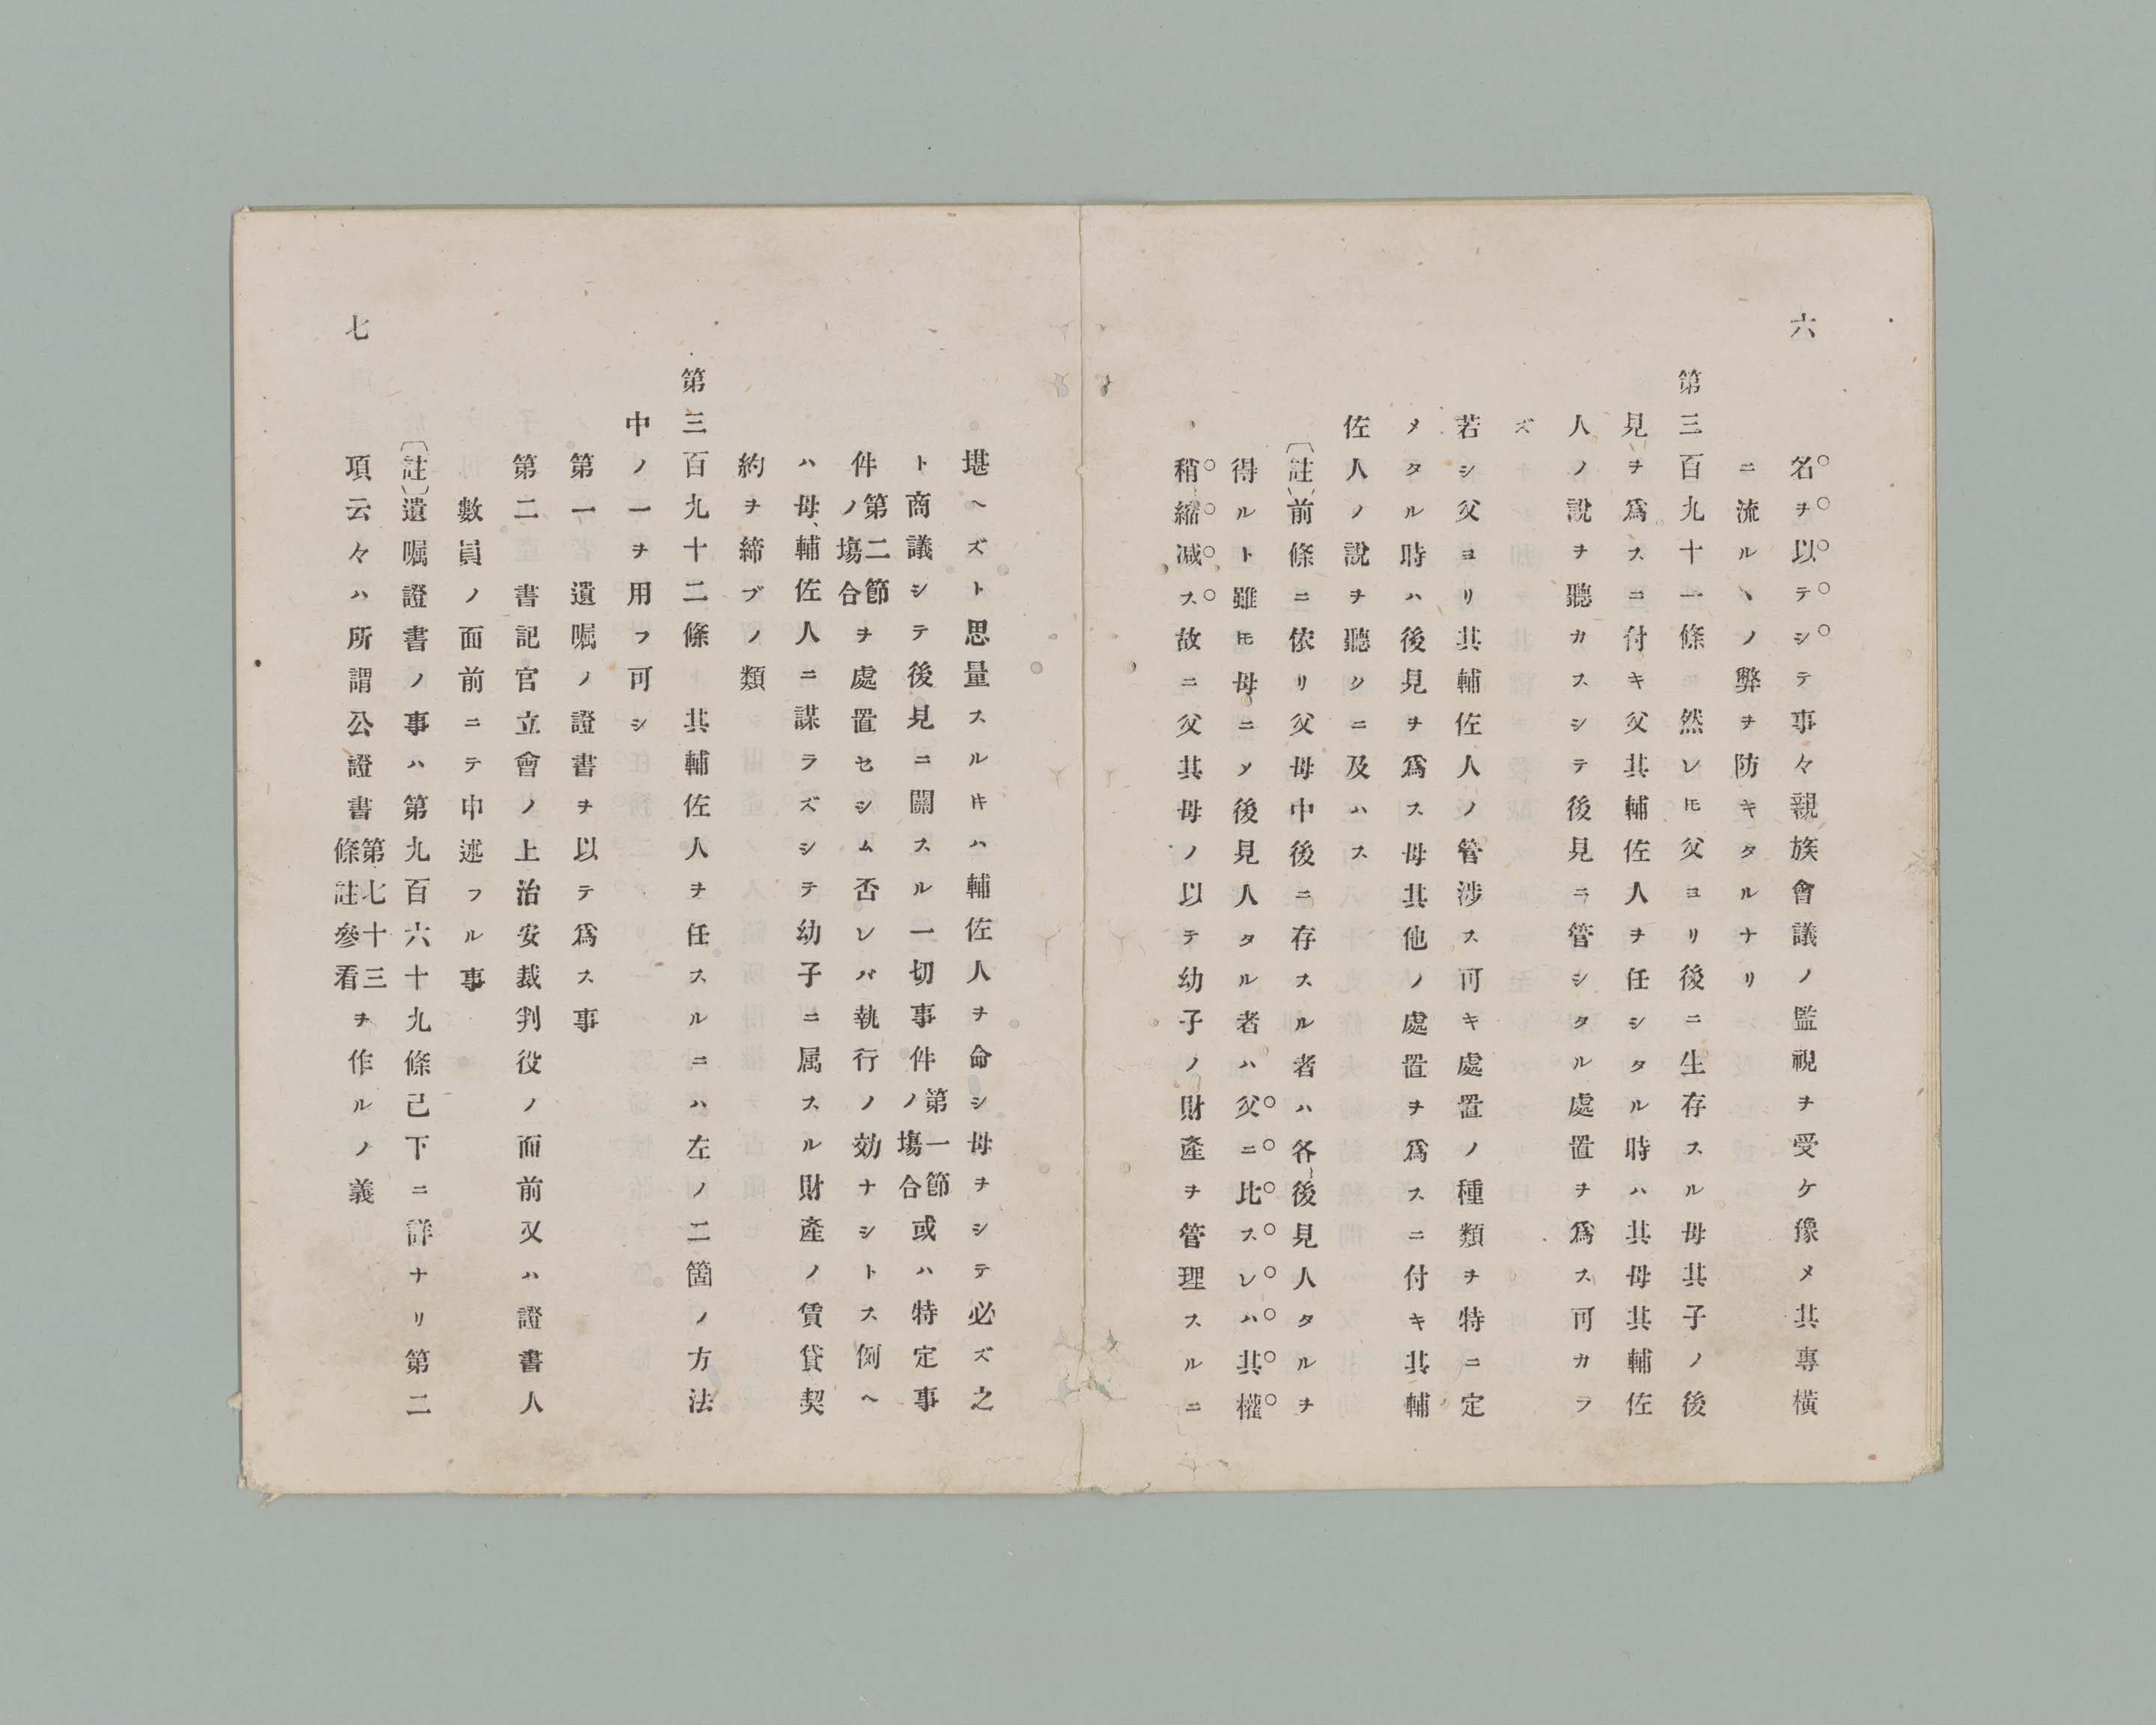 六
名ヲ以テシテ事々親族會議ノ監視ヲ受ケ豫メ其專橫
ニ流ルヽノ弊ヲ防キタルナリ
第三百九十一條 然レ𪜈父ヨリ後ニ生存スル母其子ノ後
見ヲ爲スニ付キ父其輔佐人ヲ任シタル時ハ其母其輔佐
人ノ說ヲ聽カスシテ後見ニ管シタル處置ヲ爲ス可カラ
ズ
若シ父ヨリ其輔佐人ノ管涉ス可キ處置ノ種類ヲ特ニ定
メタル時ハ後見ヲ爲ス母其他ノ處置ヲ爲スニ付キ其輔
佐人ノ說ヲ聽クニ及ハス
〔註〕前條ニ依リ父母中後ニ存スル者ハ各後見人タルヲ
得ルト雖𪜈母ニメ後見人タル者ハ父ニ比スレハ其權
稍縮减ス故ニ父其母ノ以テ幼子ノ財產ヲ管理スルニ
堪ヘズト思量スルキハ輔佐人ヲ命シ母ヲシテ必ズ之
ト商議シテ後見ニ關スル一切事件第一節ノ塲合或ハ特定事
件第二節ノ塲合ヲ處置セシム否レバ執行ノ効ナシトス例ヘ
ハ母、輔佐人ニ謀ラズシテ幼子ニ属スル財產ノ賃貸契
約ヲ締ブノ類
第三百九十二條 其輔佐人ヲ任スルニハ左ノ二箇ノ方法
中ノ一ヲ用フ可シ
第一 遺囑ノ證書ヲ以テ爲ス事
第二 書記官立會ノ上治安裁判役ノ面前又ハ證書人
數員ノ面前ニテ申述フル事
〔註〕遺囑證書ノ事ハ第九百六十九條已下ニ詳ナリ第二
項云々ハ所謂公證書第七十三條註參看ヲ作ルノ義
七